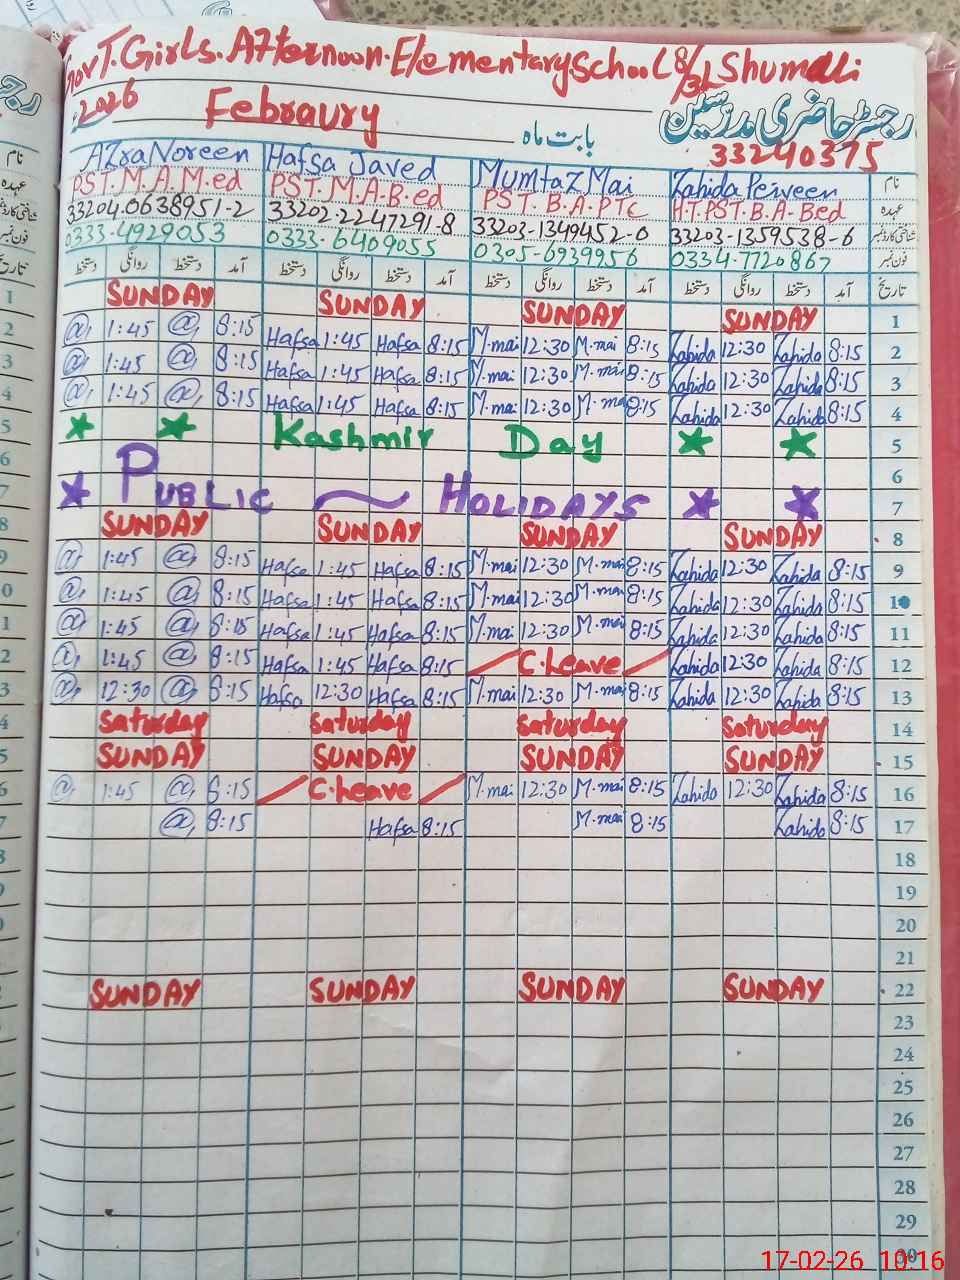 GovT. Girls. Afternoon. Elementary School 8/3L Shumali
2026 Febraury رجسٹر حاضری مدرسین
بابت ماہ 33240375
Azra Noreen Hafsa Javed Mumtaz Mai Zahida Perveen نام
PST. M. A. M. ed PST. M. A. B. ed PST. B. A. PTC H.T. PST. B. A. Bed عہدہ
33204.0638951-2 33202-2247291-8 33203-1349452-0 33203-1359538-6 شناختی کارڈ نمبر
0333-4929053 0333-6409055 0305-6939956 0334-7720867 فون نمبر
دستخط روانگی دستخط آمد دستخط روانگی دستخط آمد دستخط روانگی دستخط آمد دستخط روانگی دستخط آمد تاریخ
SUNDAY SUNDAY SUNDAY SUNDAY 1
@, 1:45 @, 8:15 Hafsa 1:45 Hafsa 8:15 M.mai 12:30 M.mai 8:15 Zahida 12:30 Zahida 8:15 2
@, 1:45 @, 8:15 Hafsa 1:45 Hafsa 8:15 M.mai 12:30 M.mai 8:15 Zahida 12:30 Zahida 8:15 3
@, 1:45 @, 8:15 Hafsa 1:45 Hafsa 8:15 M.mai 12:30 M.mai 8:15 Zahida 12:30 Zahida 8:15 4
Kashmir Day 5
6
PUBLIC HOLIDAYS 7
SUNDAY SUNDAY SUNDAY SUNDAY 8
@, 1:45 @, 8:15 Hafsa 1:45 Hafsa 8:15 M.mai 12:30 M.mai 8:15 Zahida 12:30 Zahida 8:15 9
@, 1:45 @, 8:15 Hafsa 1:45 Hafsa 8:15 M.mai 12:30 M.mai 8:15 Zahida 12:30 Zahida 8:15 10
@, 1:45 @, 8:15 Hafsa 1:45 Hafsa 8:15 M.mai 12:30 M.mai 8:15 Zahida 12:30 Zahida 8:15 11
@, 1:45 @, 8:15 Hafsa 1:45 Hafsa 8:15 C.Leave Zahida 12:30 Zahida 8:15 12
@, 12:30 @, 8:15 Hafsa 12:30 Hafsa 8:15 M.mai 12:30 M.mai 8:15 Zahida 12:30 Zahida 8:15 13
Saturday Saturday Saturday Saturday 14
SUNDAY SUNDAY SUNDAY SUNDAY 15
@, 1:45 @, 8:15 C.Leave M.mai 12:30 M.mai 8:15 Zahida 12:30 Zahida 8:15 16
@, 8:15 Hafsa 8:15 M.mai 8:15 Zahida 8:15 17
18
19
20
21
SUNDAY SUNDAY SUNDAY SUNDAY 22
23
24
25
26
27
28
29
30
17-02-26 10:16